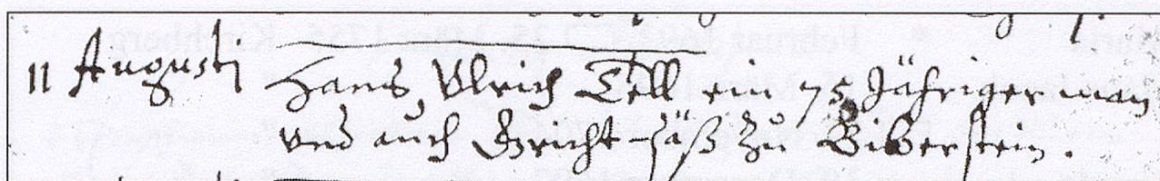 11 Augusti Hans Ulrich Tell ein 75 Jähriger man
und auch Gricht säß zu Biberstein.